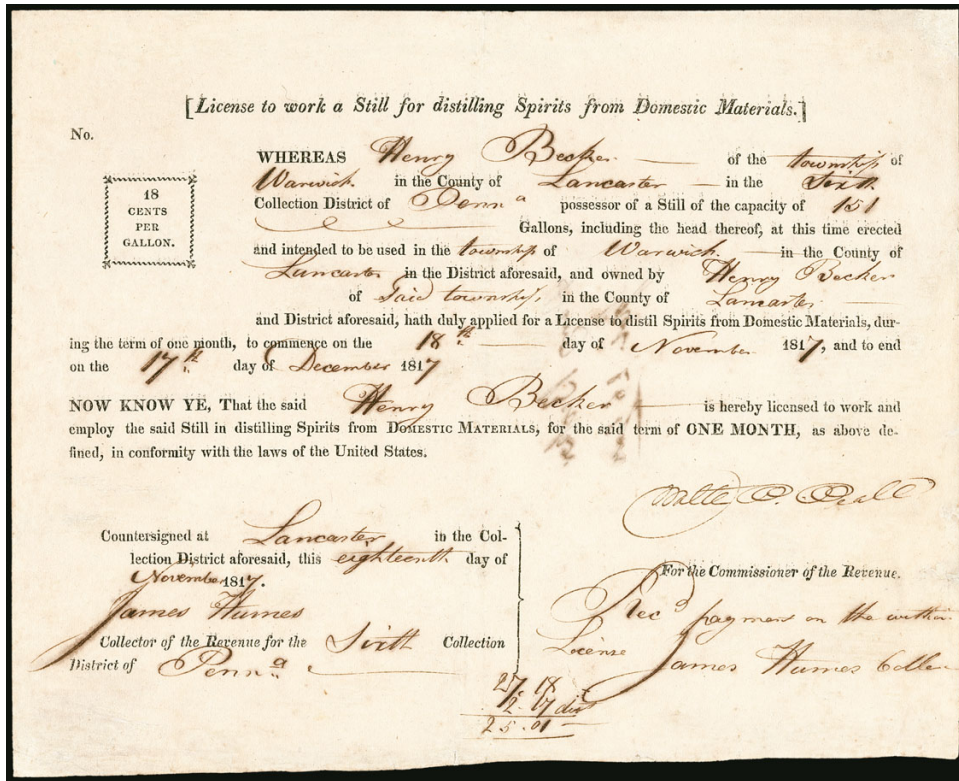 [License to work a Still for distilling Spirits from Domestic Materials.]
No.
18
CENTS
PER
GALLON.
WHEREAS Henry Becker of the township of
Warwick in the County of Lancaster in the Sixth
Collection District of Penna possessor of a Still of the capacity of 151
Gallons, including the head thereof, at this time erected
and intended to be used in the township of Warwick in the County of
Lancaster in the District aforesaid, and owned by Henry Becker
of Said township, in the County of Lancaster
and District aforesaid, hath duly applied for a License to distil Spirits from Domestic Materials, dur-
ing the term of one month, to commence on the 18th day of November 1817, and to end
on the 17th day of December 1817
NOW KNOW YE, That the said Henry Becker is hereby licensed to work and
employ the said Still in distilling Spirits from DOMESTIC MATERIALS, for the said term of ONE MONTH, as above de-
fined, in conformity with the laws of the United States.
Countersigned at Lancaster in the Col-
lection District aforesaid, this eighteenth day of
November 1817.
James Humes
Collector of the Revenue for the Sixth Collection
District of Penna
For the Commissioner of the Revenue.
Recd payment on the within
License James Humes
27.18
2.17
25.01